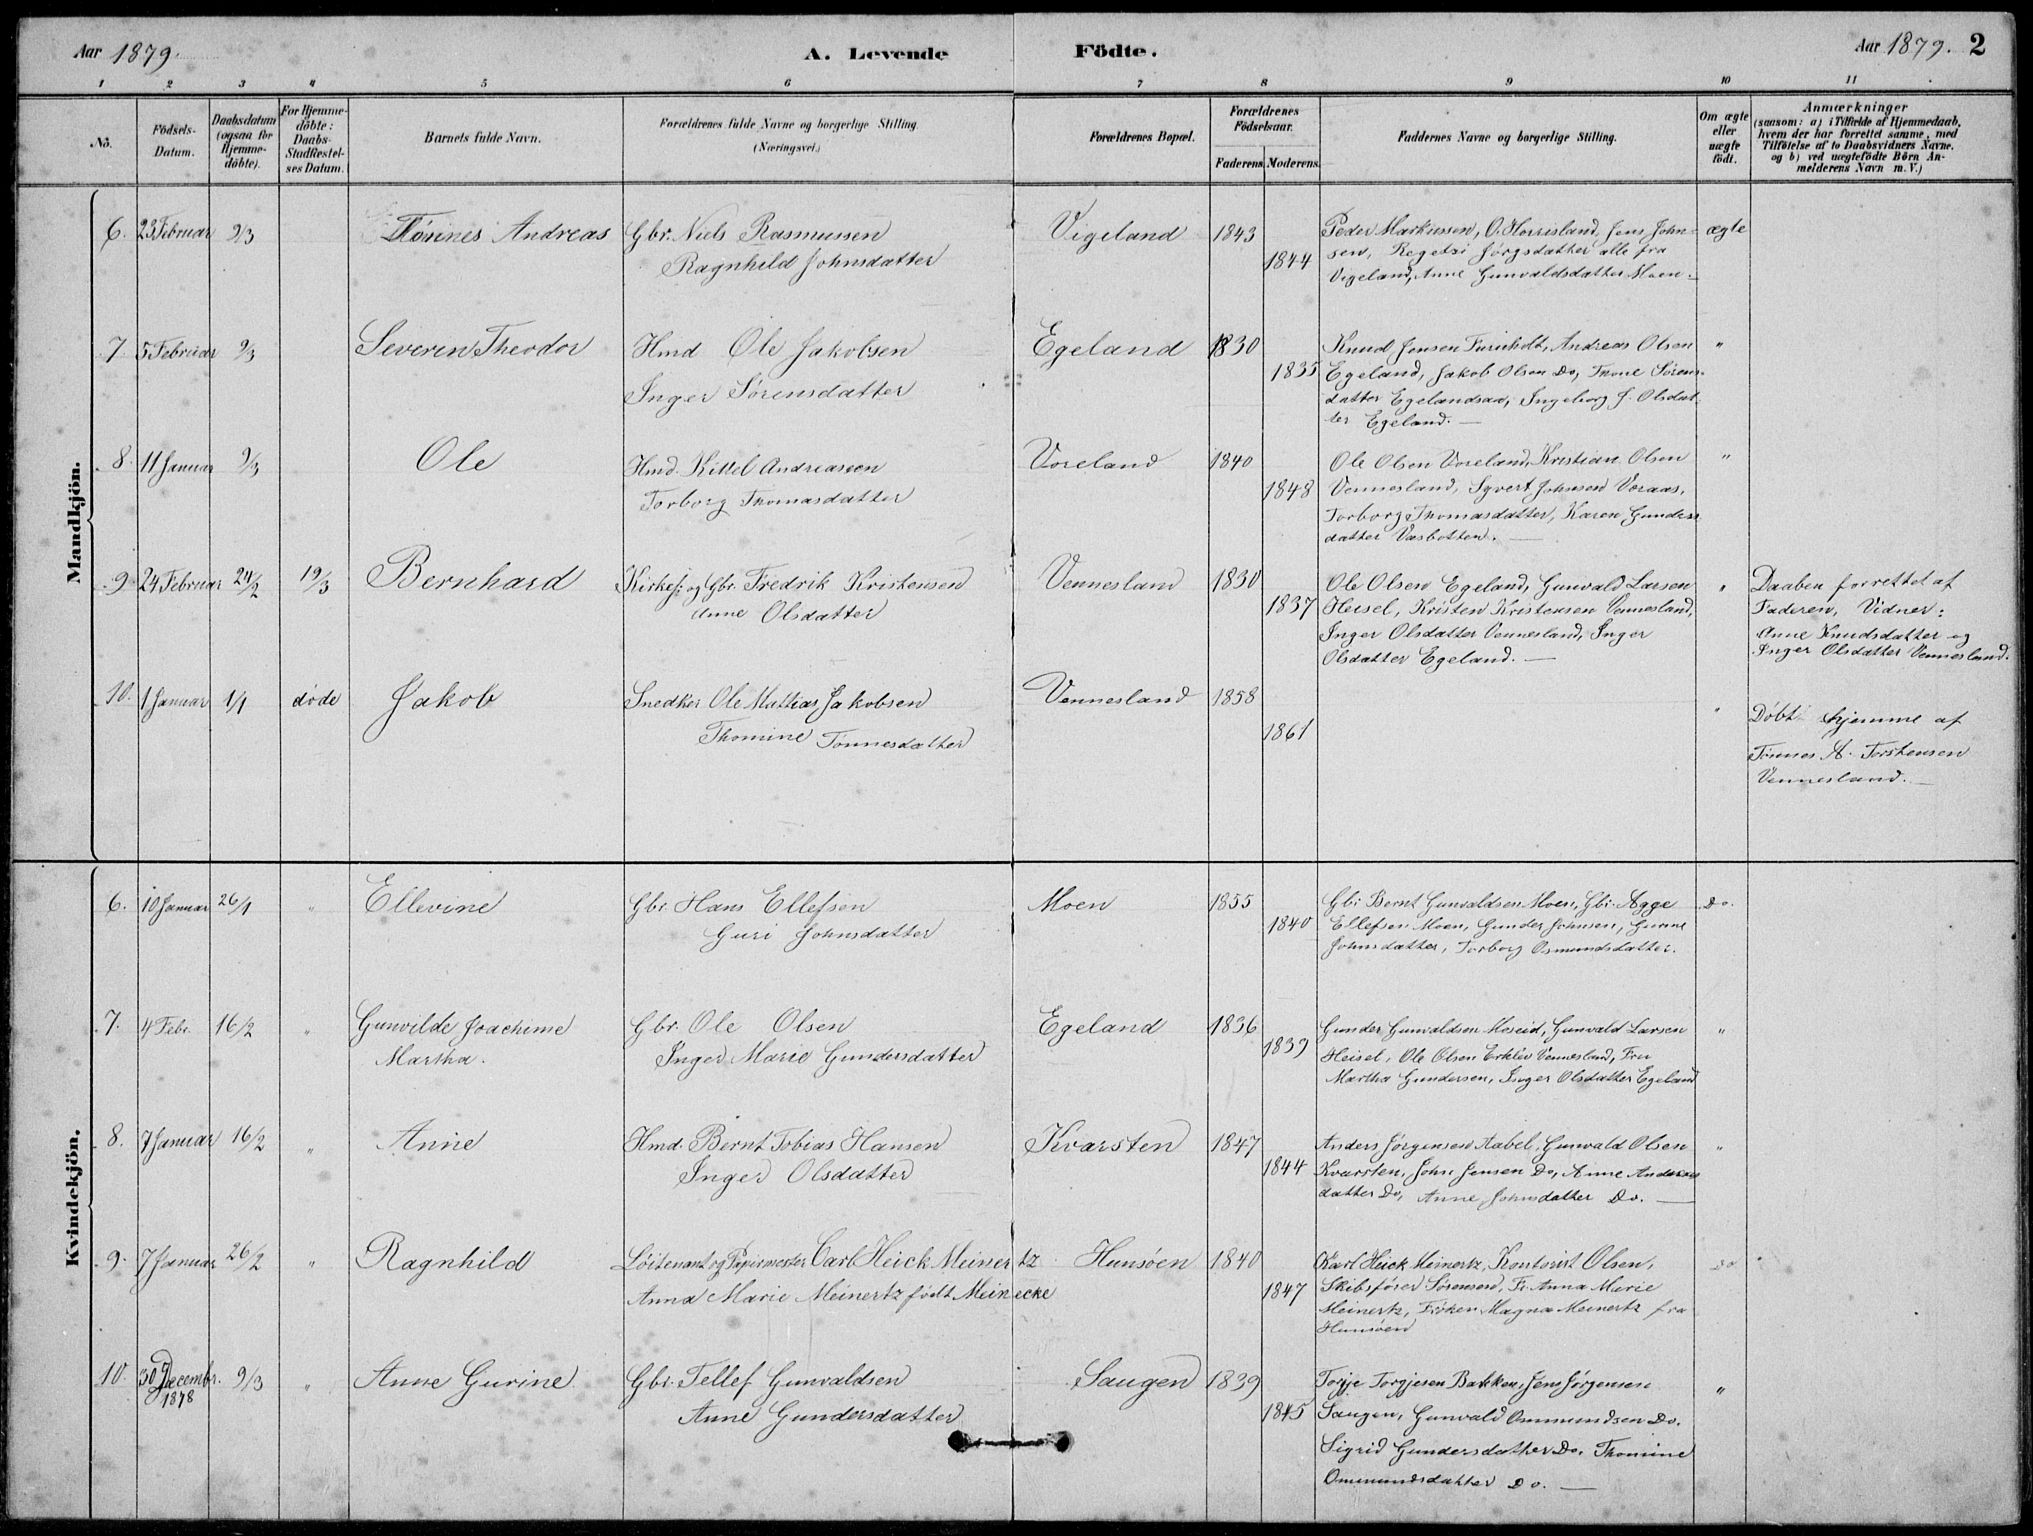 Aar 1879. A. Levende Födte. Aar 1879. 2
1 2 3 4 5 6 7 8 9 10 11
No.
Födsels-Datum.
Daabsdatum (ogsaa for Hjemme-döbte).
For Hjemme-döbte: Daabs-Stadfestel-ses Datum.
Barnets fulde Navn.
Forældrenes fulde Navne og borgerlige Stilling.
(Næringsvei.)
Forældrenes Bopæl.
Forældrenes Födselsaar.
Faderens. Moderens.
Faddernes Navne og borgerlige Stilling.
Om ægte eller uægte födt.
Anmærkninger
(saasom: a) i Tilfælde af Hjemmedaab,
hvem der har forrettet samme, med
Tilföielse af to Daabsvidners Navne.
og b) ved uægtefödte Börn An-
melderens Navn m. V.)
Mandkjön.
6. 23 Februar 9/3 Tönnes Andreas Gbr. Niels Rasmussen Vigeland 1843 Peder Markussen, O. Horrisland, Jens John- ægte
Ragnhild Johnsdatter 1844 sen, Jørgsdatter alle fra
Vigeland, Anne Gunvaldsdatter Moen.
7. 5 Februar 9/3 Severin Theodor Hmd Ole Jakobsen Egeland 1830 Knud Jensen Andreas Olsen "
Inger Sørensdatter 1835 Egeland, Jakob Olsen Do, Thone Sørens-
datter Egelandsaa, Ingeborg J. Olsdat-
ter Egeland. —
8. 11 Januar 9/3 Ole Hmd. Kittel Andreassen Voreland 1840 Ole Olsen Voreland, Kristian Olsen "
Torborg Thomasdatter 1848 Vennesland, Syvert Johnsen Voraas,
Torborg Thomasdatter, Karen Gunders
datter Vasbotten. —
9. 24 Februar 24/2 19/3 Bernhard Kirkes: og Gbr. Fredrik Kristensen Vennesland 1830 Ole Olsen Egeland, Gunvald Larsen " Daaben forrettet af
Anne Olsdatter 1837 Heisel, Kristen Kristensen Vennesland, Faderen, Vidner:
Inger Olsdatter Vennesland, Inger Anne Knudsdatter og
Olsdatter Egeland. — Inger Olsdatter Vennesland.
10. 1 Januar 1/1 døde Jakob Snedker Ole Mathias Jakobsen Vennesland 1858 " Døbt hjemme af
Thomine Tønnesdatter 1861 Tønnes A. Torstensen
Vennesland. —
Kvindekjön.
6. 10 Januar 26/1 " Ellevine Gbr. Hans Ellefsen Moen 1855 Gbr. Bernt Gunvaldsen Moen, Gbr. Agge Do.
Guri Johnsdatter 1840 Ellefsen Moen, Gunder Johnsen, Gurine
Johnsdatter, Torborg Osmundsdatter.
7. 4 Febr. 16/2 " Gunvilde Joachime Gbr. Ole Olsen Egeland 1836 Gunder Gunvaldsen Moseid, Gunvald Larsen "
Martha. Inger Marie Gundersdatter 1839 Heisel, Ole Olsen Erklev Vennesland, Fru
Martha Gundersen, Inger Olsdatter Egeland
8. 7 Januar 16/2 " Anne Hmd. Bernt Tobias Hansen Kvarsten 1847 Anders Jørgensen Aabel, Gunvald Olsen "
Inger Olsdatter 1844 Kvarsten, John Jensen Do, Anne Anders
datter Do, Anne Johnsdatter Do. —
9. 7 Januar 26/2 " Ragnhild Löitenant og Papirmester Carl Heick Meinertz Hunsøen 1840 Karl Heick Meinertz, Kontorist Olsen, Do
Anna Marie Meinertz født Meinecke 1847 Skibsfører Sørensen, Fr. Anna Marie
Meinertz, Frøken Magna Meinertz fra
Hunsøen
10. 30 Decembr. 9/3 " Anne Gurine Gbr. Tellef Gunvaldsen Saugen 1839 Torjje Torgjesen Bakken, Jens Jørgensen "
1878 Anne Gundersdatter 1845 Saugen, Gunvald Ommundsen Do.
Sigrid Gundersdatter Do. Thomine
Ommundsdatter Do. —